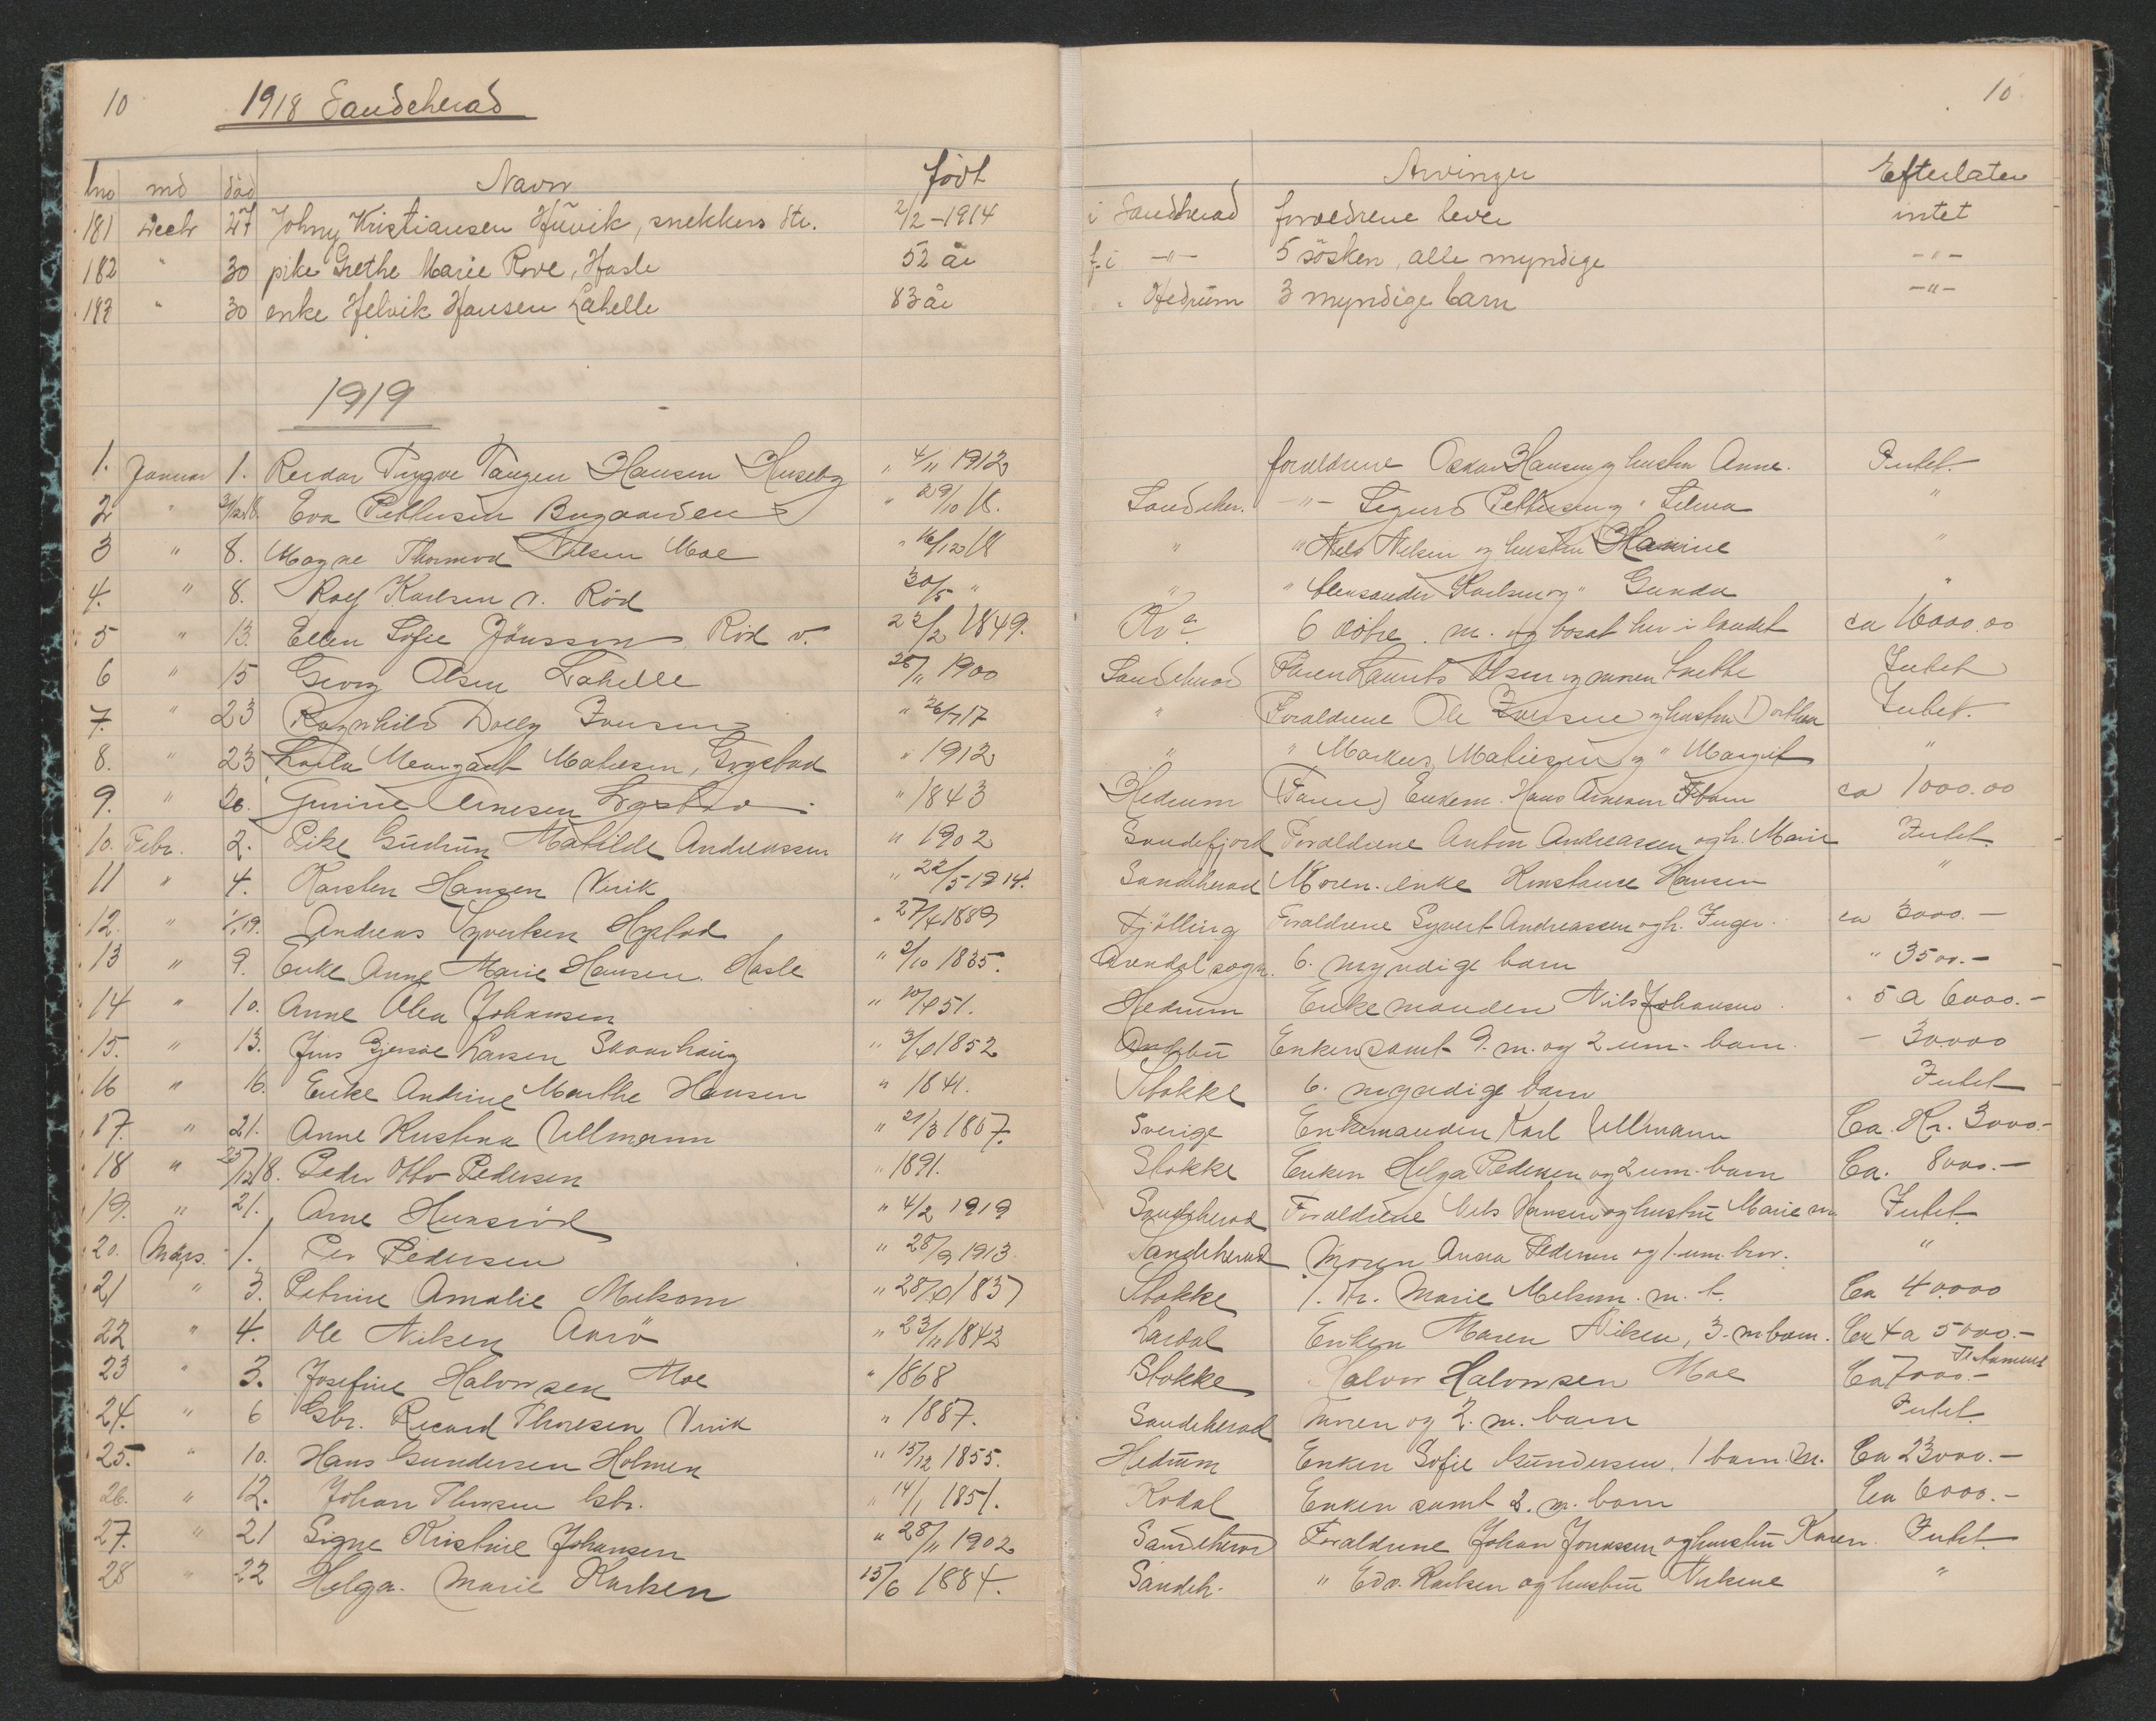 10 1918 Sandeherad 10
lno md død Navn født Arvinger Efterlater
181 Decbr 27 Johny Kristiansen Hüvik, snekkers dtr. 2/2-1914 i Sandherad foreldrene lever intet
182 " 30 pike Grethe Marie Rove, Hasle 52 år f. i -"- 5 søsken, alle myndige -"-
183 " 30 enke Helvik Hansen Lahelle 83 år " Hedrum 3 myndige barn -"-
1919
1. Januar 1. Reidar Trygve Tangen Hansen Huseby " 4/11 1912 foreldrene Oskar Hansen og hustru Anne. Intet.
2 " 31/12 18. Eva Pettersen Bugaarden " 29/10 18. Sandeher. -"- Sigurd Pettersen og " Selma "
3 " 8. Magne Thormod Nilsen Moe " 16/12 18 " " Nils Nilsen og hustru Hanine "
4. " 8. Rolf Karlsen v. Rød 30/5 " " " Aleksander Karlsen og " Gunda "
5 " 13. Ellen Sofie Jönsson Rød v. 22/2 1849. 6 døtre. m. og bosat her i landet ca 16000.00
6 " 15 Georg Olsen Lahelle 25/11 1900 Sandeherad Faren Laurits Olsen og moren Intet
7. " 23 Ragnhild Dolly Iversen " 26/7 17 " Foreldrene Ole Iversen og hustru Dorthea Intet.
8. " 23 Margaret Mathisen, Gogstad " 1912 " " Markus Mathiesen og " Margit "
9. " 26. Gurine Arnesen " 1843 Hedrum (Faren) Enkem. Hans Arnesen 7 barn ca 1000.00
10. Febr. 2. Pike Gudrun Mathilde Andreassen " 1902 Sandefjord Foreldrene Anton Andreassen og h. Marie Intet.
11 " 4. Karsten Hansen Virik " 22/5 1914. Sandeherad Moren. enke Konstance Hansen "
12. " 1/19. Andreas Syvertsen " 27/4 1889 Tjølling Foreldrene Syvert Andreassen og h. Inger. ca 3000.-
13 " 9. Enke Anne Marie Hansen. Hasle " 2/10 1835. Arendal sogn. 6. myndige barn " 3500.-
14 " 10. Anne Olea Johansen " 10/4 51. Hedrum Enkemanden Nils Johansen. " 5 a 6000.-
15. " 13. Jens Larsen " 3/10 1852 Enken samt 9. m. og 2 um. barn. - 30.000
16 " 16. Enke Andrine Marthe Hansen " 1841. Stokke 6. myndige barn Intet
17. " 21. Anne Kristina Ullmann " 21/3 1867. Sverige Enkemanden Karl Ullmann Ca. Kr. 3000.-
18 " 25/12 18. Peder Otto Pedersen " 1891. Stokke Enken Helga Pedersen og 2 um. barn Ca. 8000.-
19. " 21. Arne Hunsrød " 4/2 1919 Sandeherad Foreldrene Nils Hansen og hustru Marie Intet.
20. Mars. 1. Per Pedersen " 28/9 1913. Sandeherad Moren Anna Pedersen og 1. um. bror. "
21 " 3. Petrine Amalie Melsom " 28/10 1837 Stokke 1. dtr. Marie Melsom. m. Ca 40000
22 " 4. Ole Nilsen Aarø " 23/11 1842 Lardal Enken Maren Nilsen, 3. m barn. Ca 4 a 5000.-
23 " 3. Josefine Halvorsen Moe " 1868 Stokke Halvor Halvorsen Moe Ca 7000.- Testament
24. " 6 Gbr. Ricard Thoresen Virik " 1887. Sandeherad Moren og 2. m. barn Intet.
25. " 10. Hans Gundersen Holmen " 15/12 1855. Hedrum Enken Sofie Gundersen. 1 barn. m. Ca 23000.-
26. " 12. Johan Thorsen Gbr. " 14/1 1851. Kodal Enken samt 2. m. barn Ca 6000.-
27. " 21 Signe Kristine Johansen " 28/11 1902 Sandeherad Foreldrene Johan Jonassen og hustru Karen. Intet.
28 " 22 Helga. Marie Karlsen 15/6 1884. Sandeh. " Edv. Karlsen og hustru "